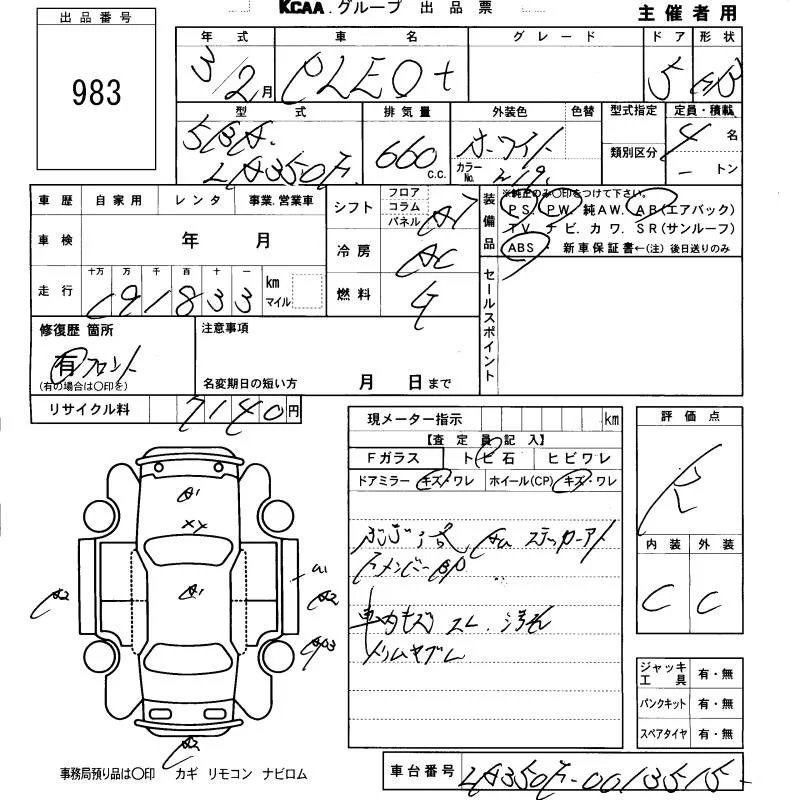 KCAA.グループ 出品票
主催者用
出品番号
983
年式 車名 グレード ドア 形状
3/2月 PLEO+ 5 HB
型式 排気量 外装色 色替 型式指定 定員・積載
5BA- 660 c.c. ホワイト 4名
LA350F カラーNo. 219 類別区分 ートン
車歴 自家用 レンタ 事業.営業車
車検 年 月
走行 十万 万 千 百 十 一 km マイル
191833
シフト フロア コラム パネル AT
冷房 AC
燃料 G
装備品 ※純正のみ〇印をつけて下さい。
PS. PW 純AW. AB(エアバック)
TV ナビ. カワ. SR(サンルーフ)
ABS 新車保証書←(注) 後日送りのみ
セールスポイント
修復歴 箇所
有 フロント
(有の場合は〇印を)
注意事項
名変期日の短い方 月 日まで
リサイクル料 7140円
現メーター指示 km
【査定員記入】
Fガラス トビ石 ヒビワレ
ドアミラー キズ・ワレ ホイール(CP) キズ・ワレ
ステッカーアト
車内キズ スレ.汚れ
評価点
R
内装 外装
C C
A1
XX
A1
A1
A2
A2
ジャッキ工具 有・無
パンクキット 有・無
スペアタイヤ 有・無
事務局預り品は〇印 カギ リモコン ナビロム
車台番号 LA350F-0013515-